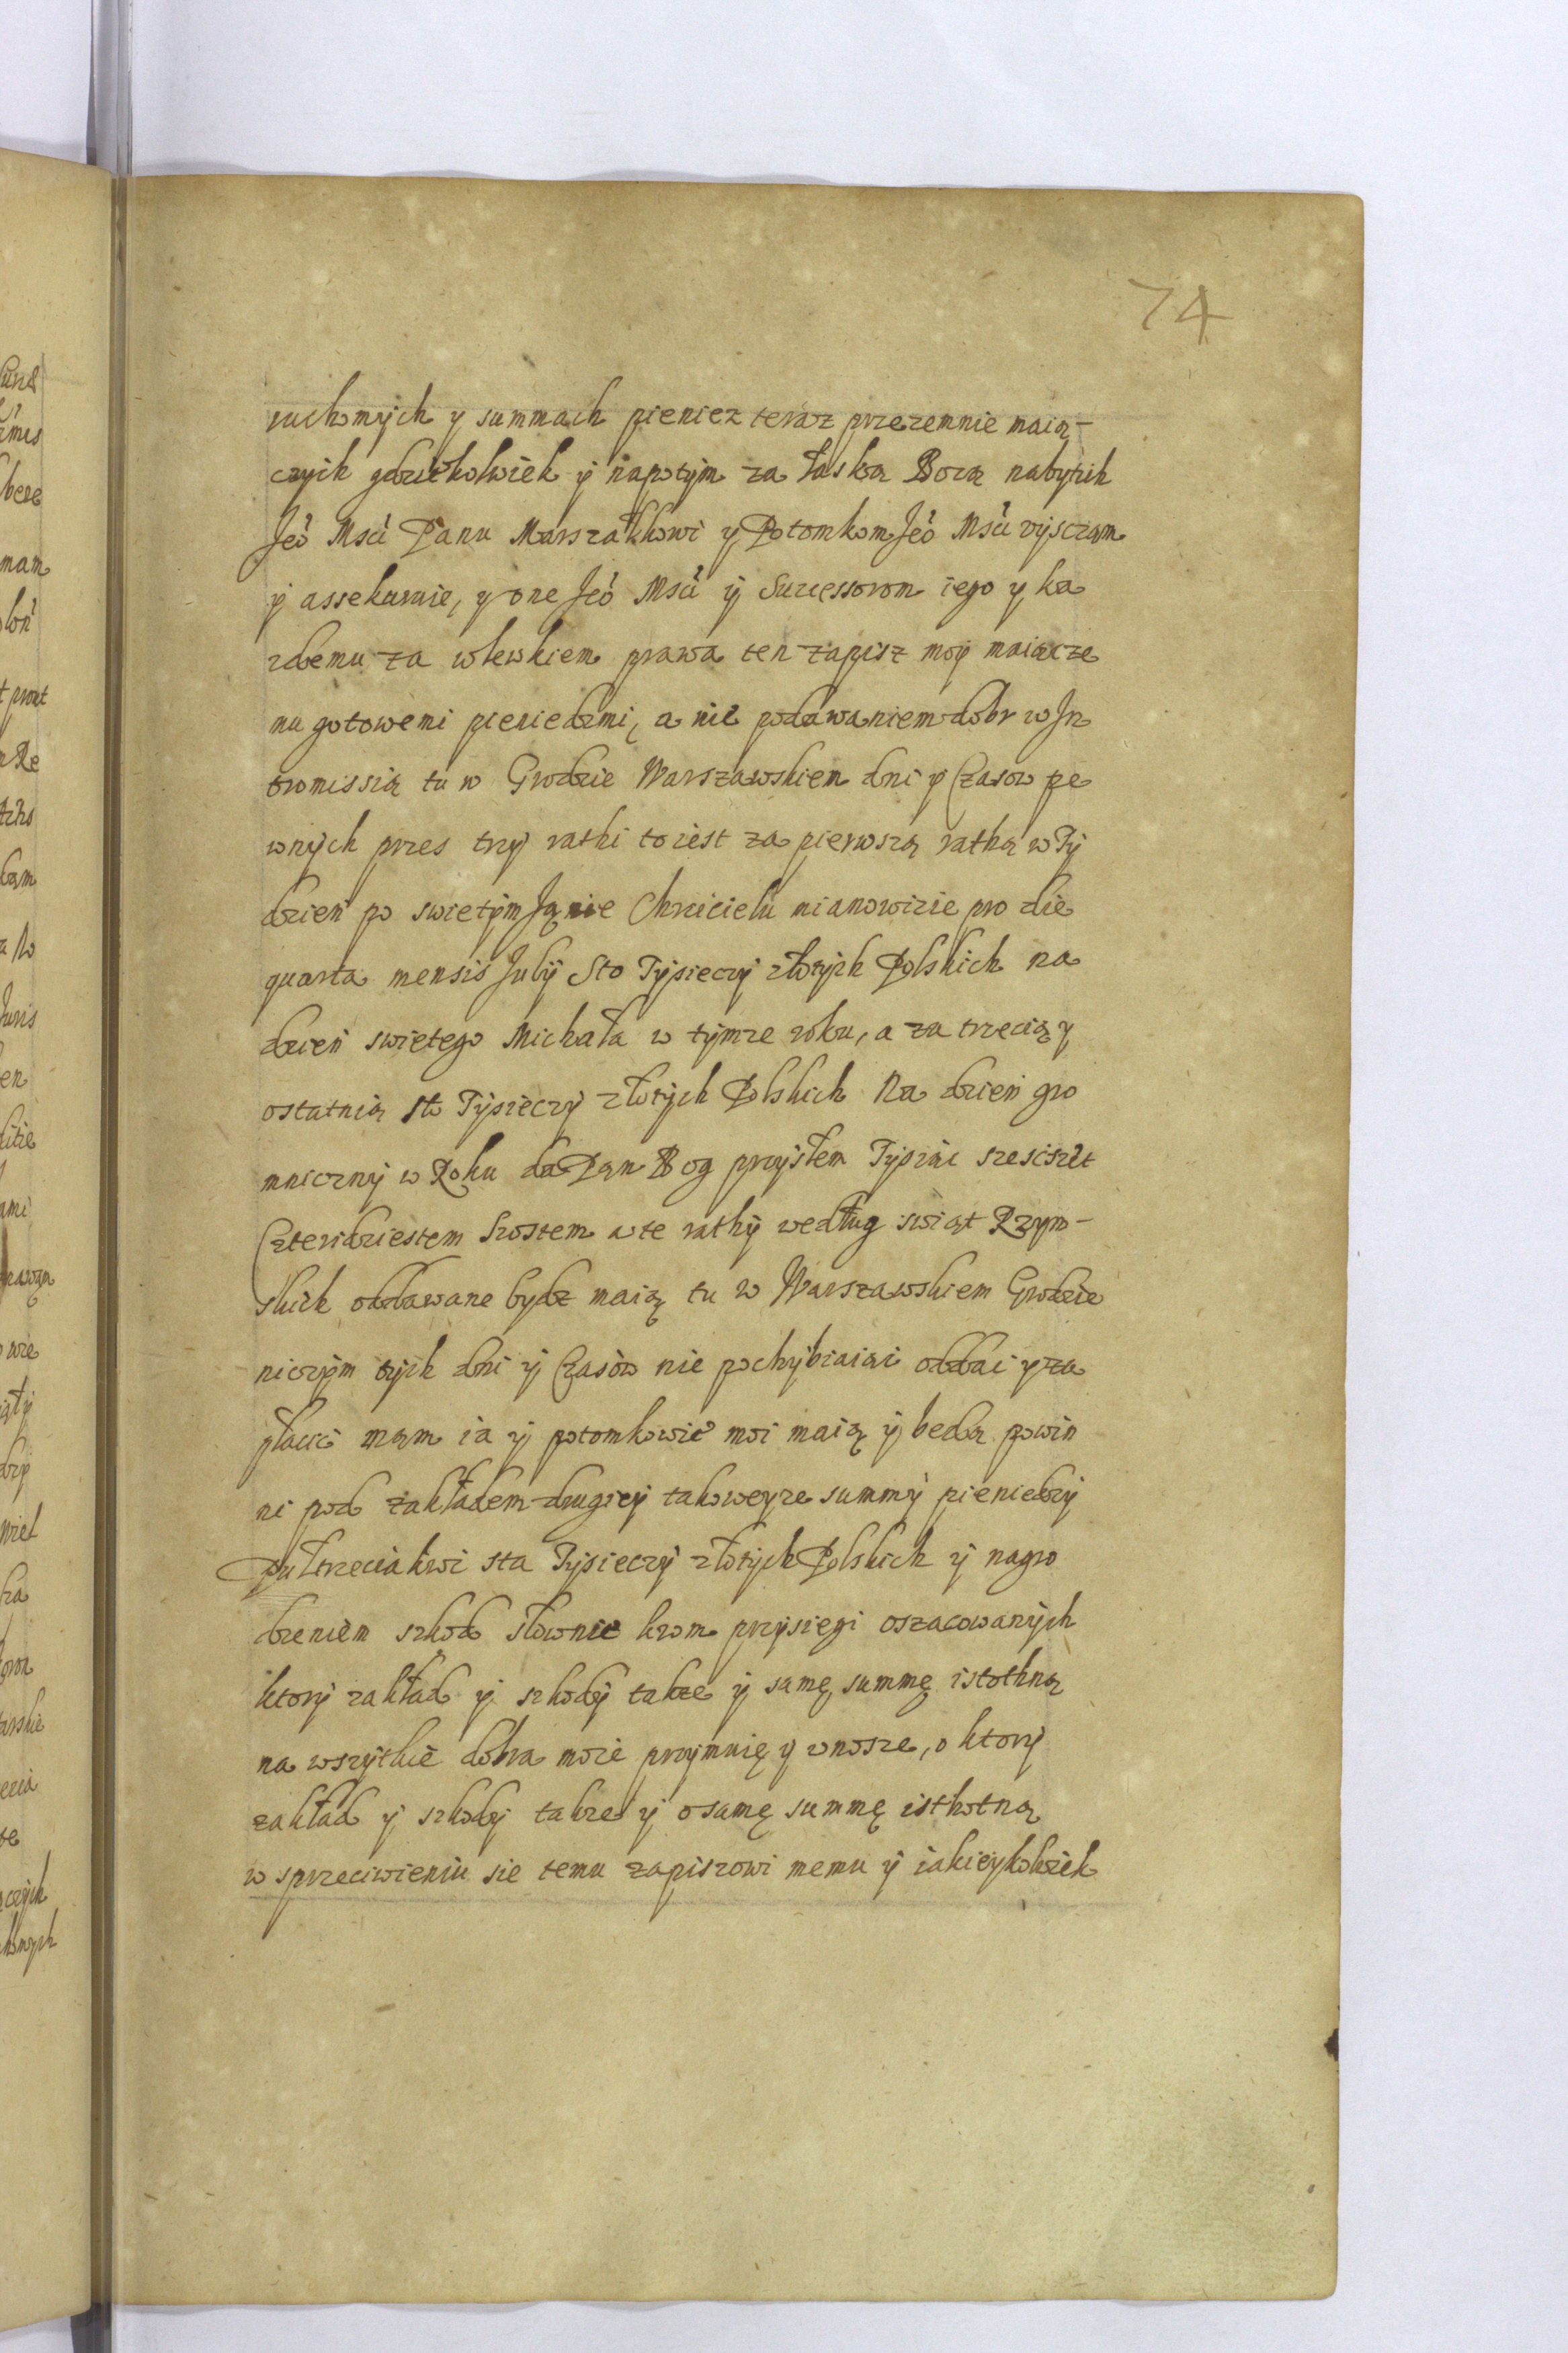 74
ruchomych y summach pieniez teraz przezemnie maią-
czych gdziekolwiek y napotym za łaską Bozą nabytich
Jeo Mści Panu Marszałkowi y Potomkom Jeo Mści vysczam
y assekuruie, y one Jeo Mści y Successorom iego y ka
zdemu za wlewkiem prawa ten zapisz moy maiącze
mu gotowemi pieniedzmi, a nie podawaniem dobr w In
tromissią tu w Grodzie Warszawskiem dni y Czasow pe
wnych przes trzy rathi to iest za pierwszą rathą w Ty
dzien po swietym Janie Chrzcicielu mianowicie pro die
quarta mensis July Sto Tysieczy złotych Polskich na
dzien swietego Michała w tymze roku, a za trzecią y
ostatnią sto Tysieczy złotych Polskich Na dzien gro
mniczny w Roku da Pan Bog przysłem Tysiąc szesciset
Czterdziestem Szostem a te rathy według swiąt Rzym-
skich oddawane bydz maią tu w Warszawskiem Grodzie
niczym tych dni y Czasow nie pochybiaiąc oddac y za
płacic mam ia y potomkowie moi maią y bedą powin
ni pod zakładem drugiey takoweyze summy pieniedzy
Pułtrzeciakwi sta Tysieczy złotych Polskich y nagro
dzeniem szkod słownie krom przysiegi oszacowanych
ktory zakład y szkody takze y samę summę istothną
na wszytkie dobra moie przymuię y wnosze, o ktory
zakład y szkody takze y o samę summę isthotną
w sprzeciwieniu sie temu zapiszowi memu y iakieykolwiek